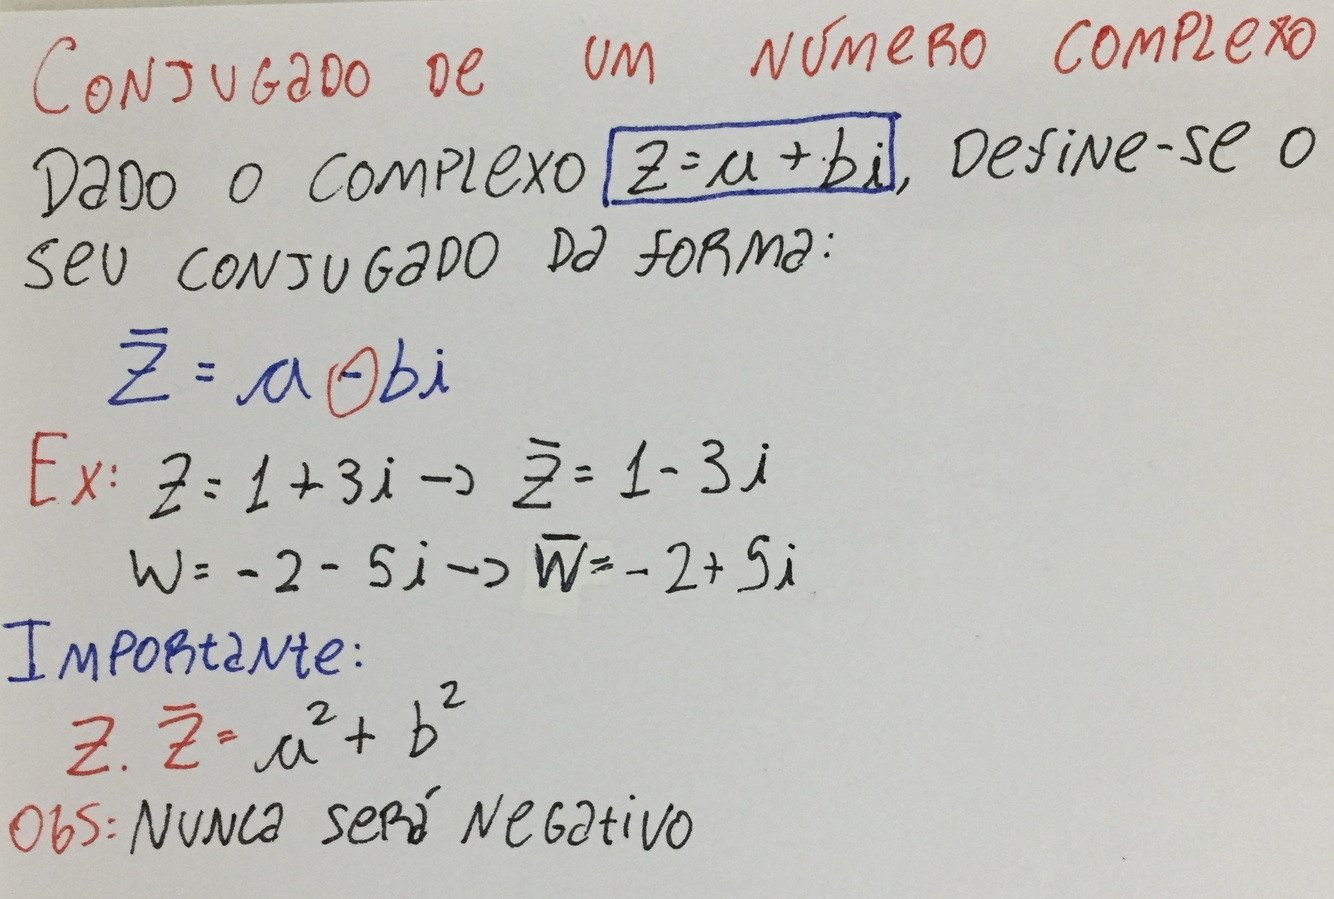 CONJUGADO DE UM NÚMERO COMPLEXO
DADO O COMPLEXO Z=a+bi, DEFINE-SE O
SEU CONJUGADO DA FORMA:
Z̄ = a-bi
Ex: Z=1+3i→ Z̄=1-3i
W=-2-5i→ W̄=-2+5i
IMPORTANTE:
Z. Z̄= a²+ b²
Obs: NUNCA SERÁ NEGATIVO